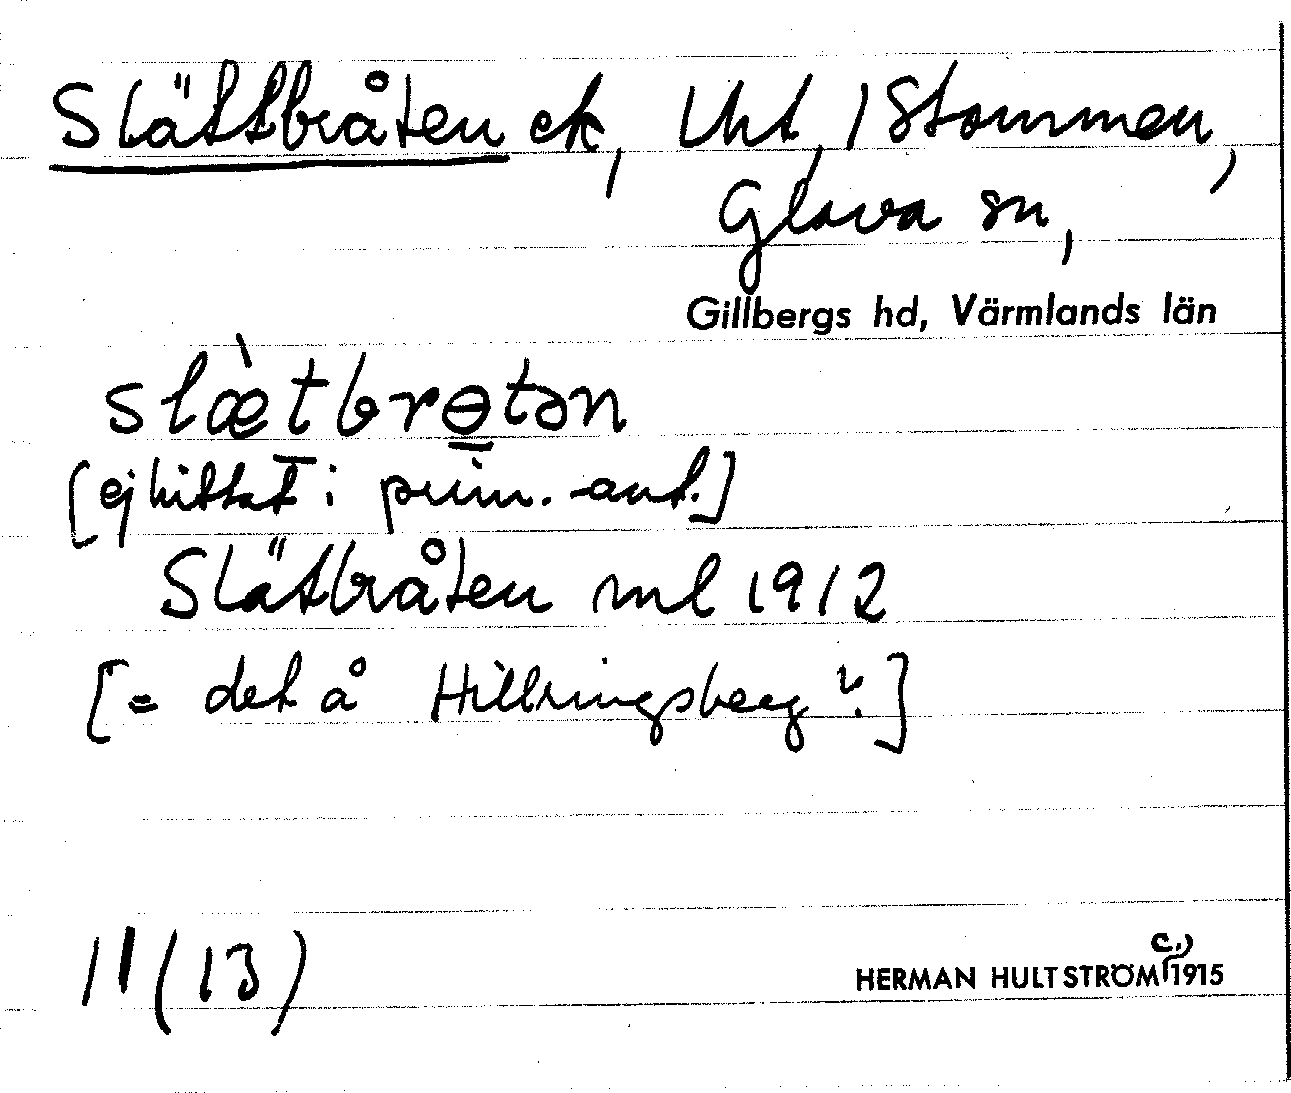 Slättbråten ek, Uht, 1 Stommen,
Glava sn,
Gillbergs hd, Värmlands län
slæ̀tbrɵtən
[ej hittat i prim. ant.]
Slätbråten ml 1912
[= det å Hillringsberg?]
11 (13)
HERMAN HULTSTRÖM c.) 1915